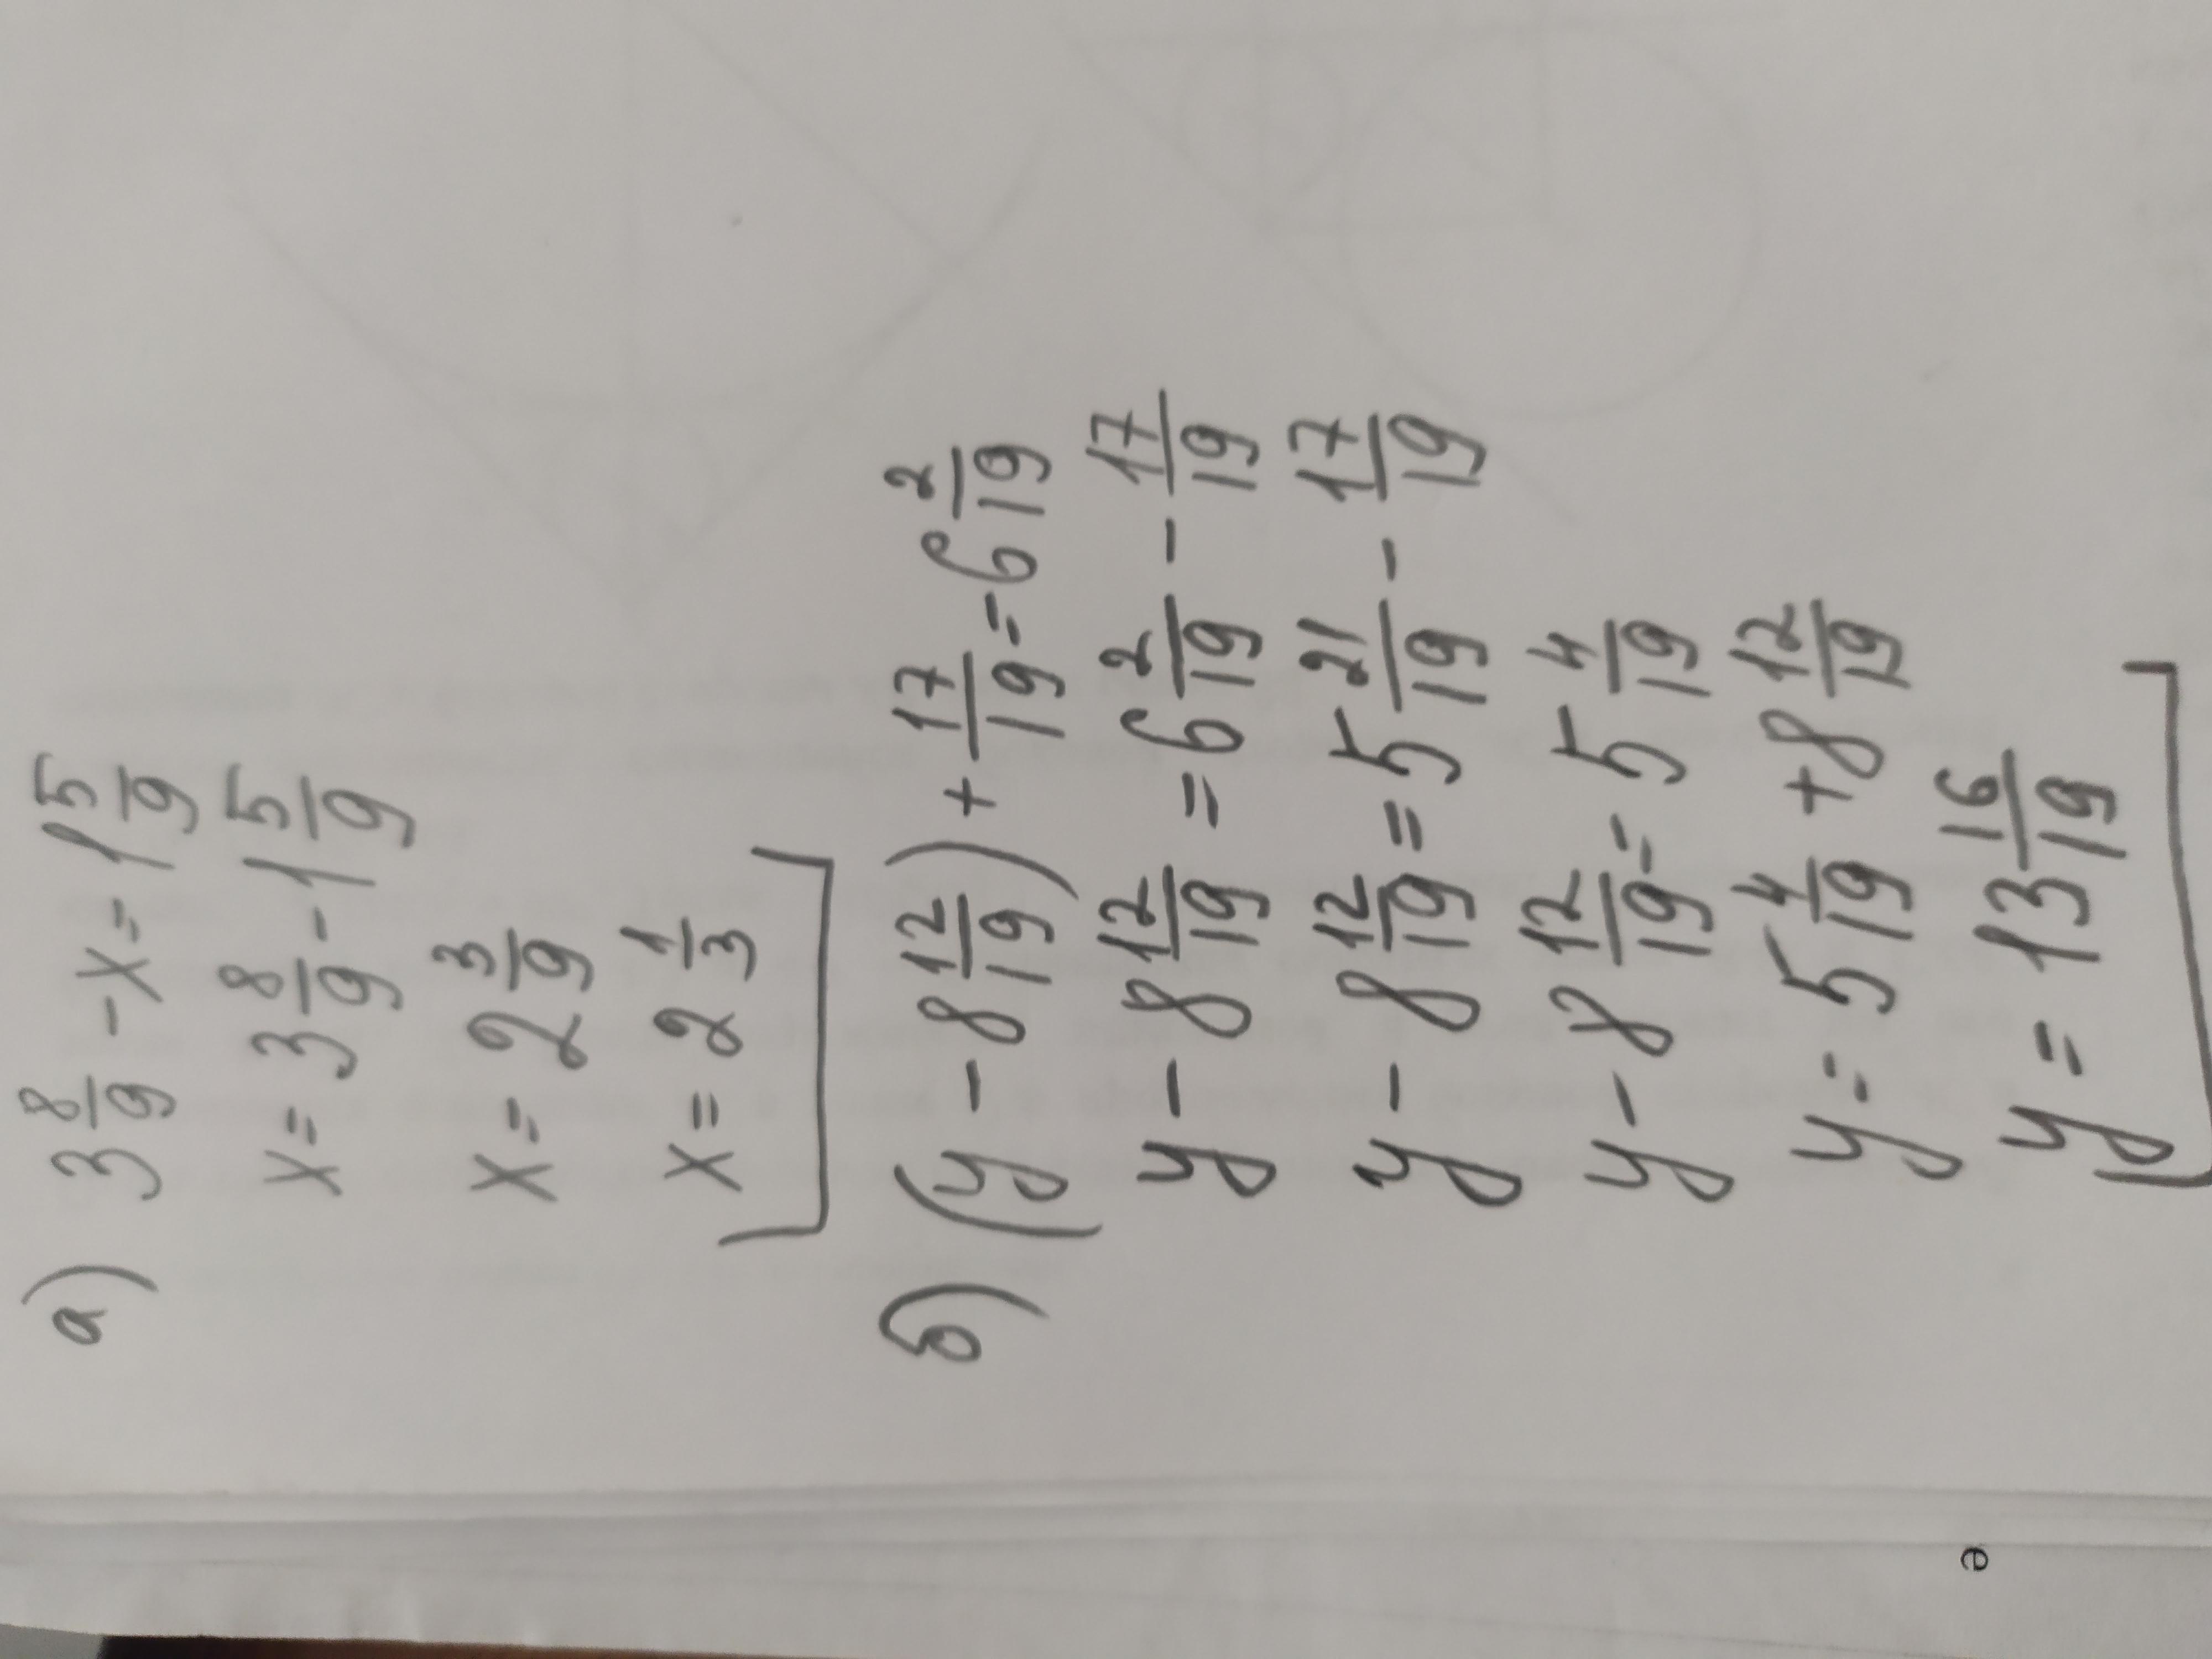 а) 3 8/9 - x = 1 5/9
x = 3 8/9 - 1 5/9
x = 2 3/9
x = 2 1/3
б) (y - 8 12/19) + 17/19 = 6 2/19
y - 8 12/19 = 6 2/19 - 17/19
y - 8 12/19 = 5 21/19 - 17/19
y - 8 12/19 = 5 4/19
y = 5 4/19 + 8 12/19
y = 13 16/19
e